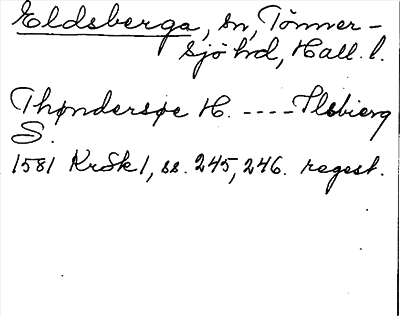 Eldsberga, sn, Tönner-
sjö hd, Hall. l.
Thøndersøe H. ---- Elsbierg
S.
1581 KrSk 1, ss. 245, 246. regest.